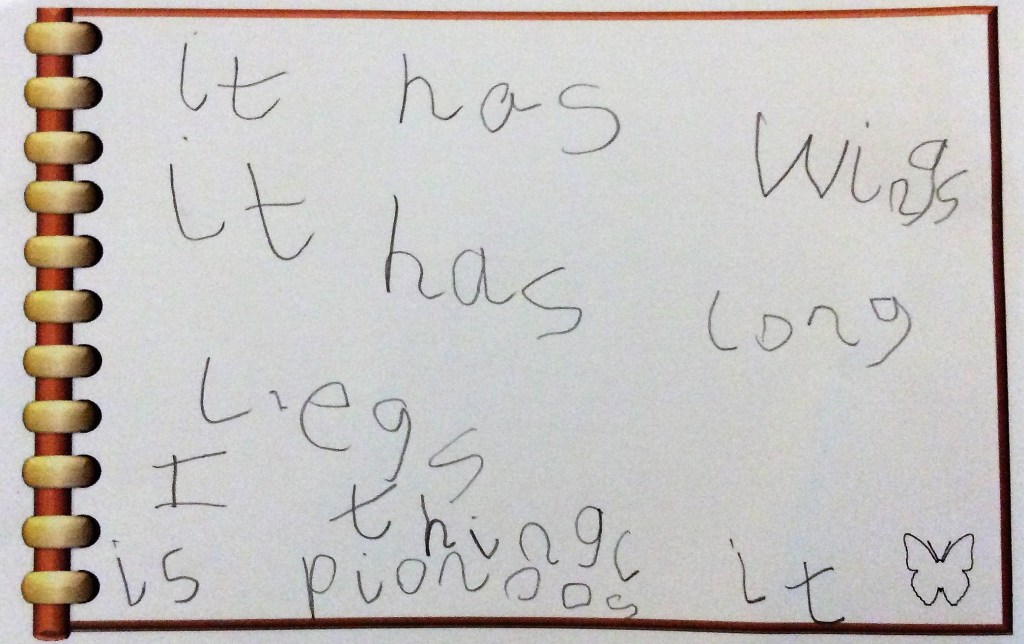 it has Wings
it has long
Legs
I thingc it
is pionoos